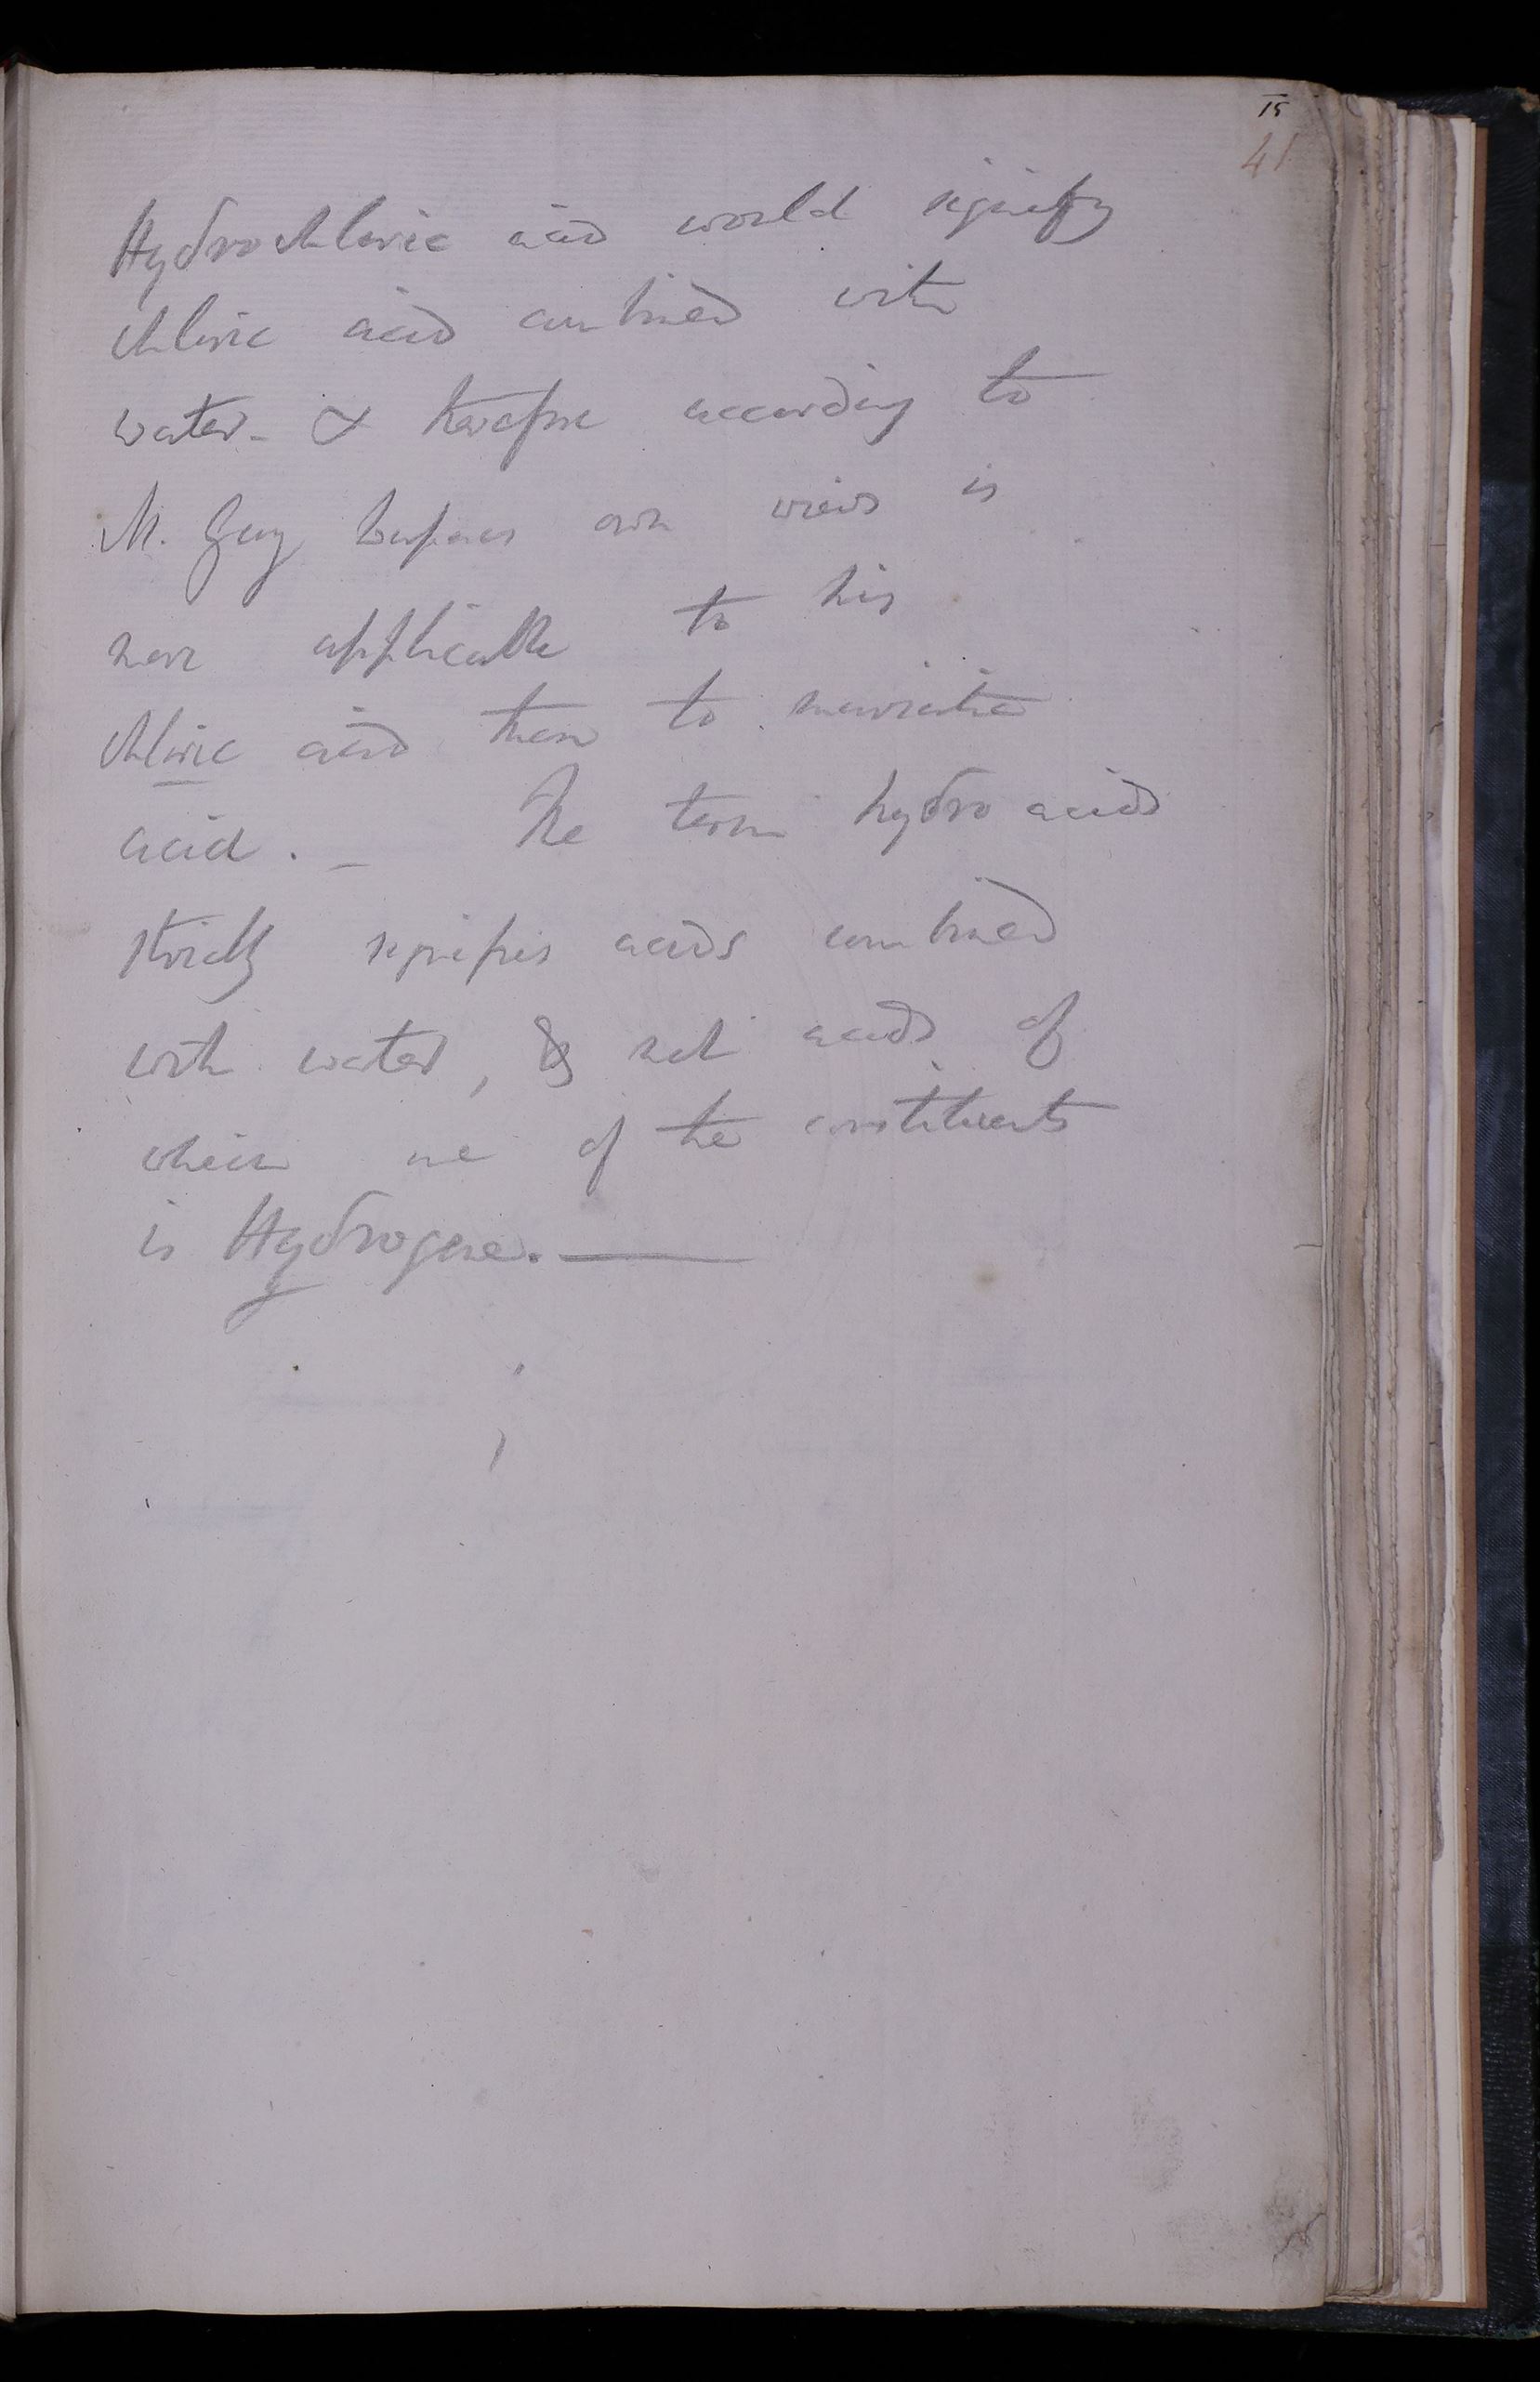 15
41
Hydrochloric acid would signify
chloric acid combined with
water - & therefore according to
M. Gay Lussacs own views is
more applicable to his
chloric acid than to muriatic
acid. _ The term hydro acids
strictly signifies acids combined
with water, & not acids of
which one of the constituents
is Hydrogene. —